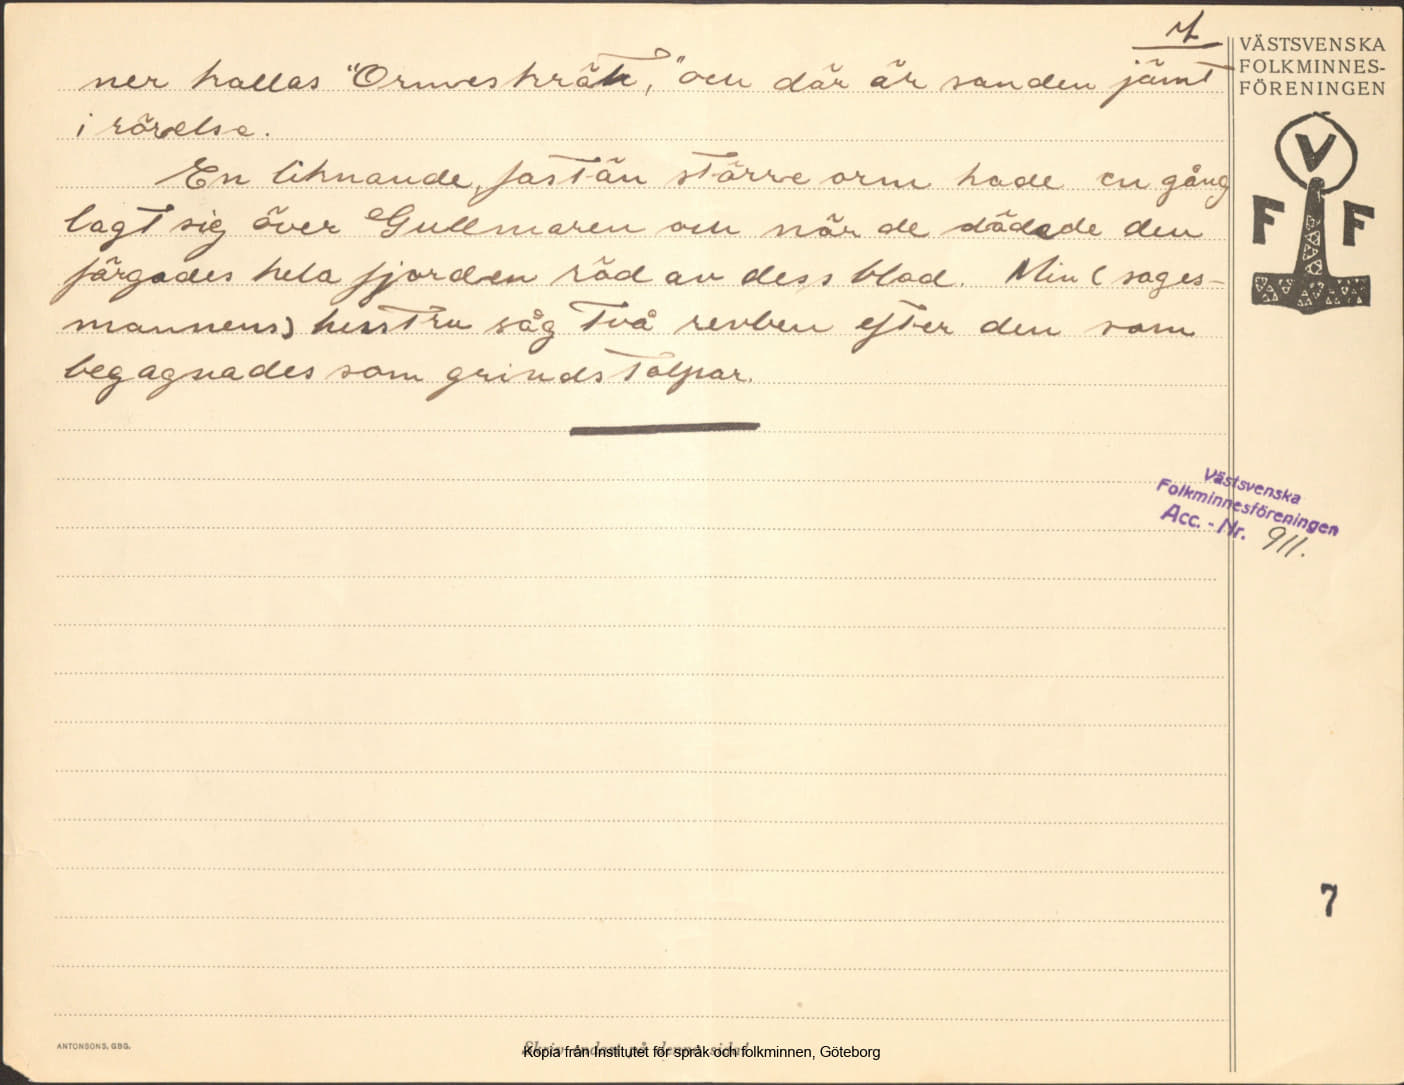 ner kallas "Ormeskräk," och där är sanden jämt
i rörelse.
En liknande, fastän större orm hade en gång
lagt sig över Gullmaren och när de dödade den
färgades hela fjorden röd av dess blod. Min (sages-
mannens) hustru såg två revben efter den som
begagnades som grindstolpar.
VÄSTSVENSKA
FOLKMINNES-
FÖRENINGEN
V
F F
Västsvenska
Folkminnesföreningen
Acc. - Nr. 911.
7
ANTONSONS, GBG.
Skriv endast på denna sida!
Kopia från Institutet för språk och folkminnen, Göteborg